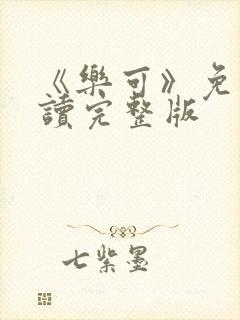 《樂可》免
讀完整版
七紫墨